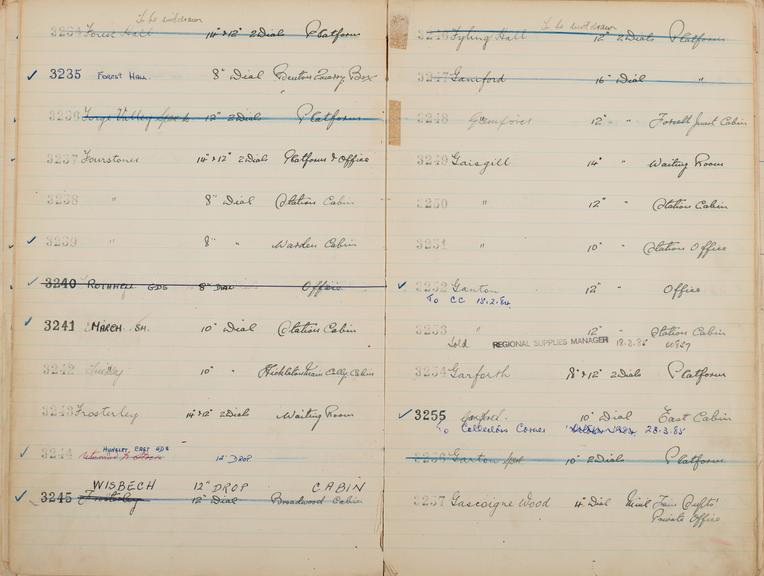 To be withdrawn
3234 Forest Hall 14" & 12" 2 Dials Platform
3235 FOREST HALL. 8" Dial Benton Quarry Box
3236 Forge Valley 12" 2 Dials Platform
3237 Fourstones 14" & 12" 2 Dials Platform & Office
3238 " 8" Dial Station Cabin
3239 " 8" " Warden Cabin
3240 ROTHWELL GDS 8" DIAL Office
3241 MARCH 10" Dial Station Cabin
3242 10" " Cabin
3243 Frosterley 14" & 12" 2 Dials Waiting Room
HUNSLET EAST GDS
3244 12" DROP
WISBECH 12" DROP CABIN
3245 Frosterley 12" Dial Broadwood Cabin
To be withdrawn
3246 Fyling Hall 12" 2 Dials Platform
3247 Gainford 16" Dial "
3248 Gainford 12" " Forcett Junct Cabin
3249 Gaisgill 14" " Waiting Room
3250 " 12" " Station Cabin
3251 " 10" " Station Office
3252 Ganton 12" " Office
To CC 18.2.84
3253 " 12" " Station Cabin
Sold REGIONAL SUPPLIES MANAGER
3254 Garforth 18" & 12" 2 Dials Platform
3255 10" Dial East Cabin
To Collectors Corner 28.3.85
3256 Garton 10" 2 Dials Platform
3257 Gascoigne Wood 14" Dial
Private Office